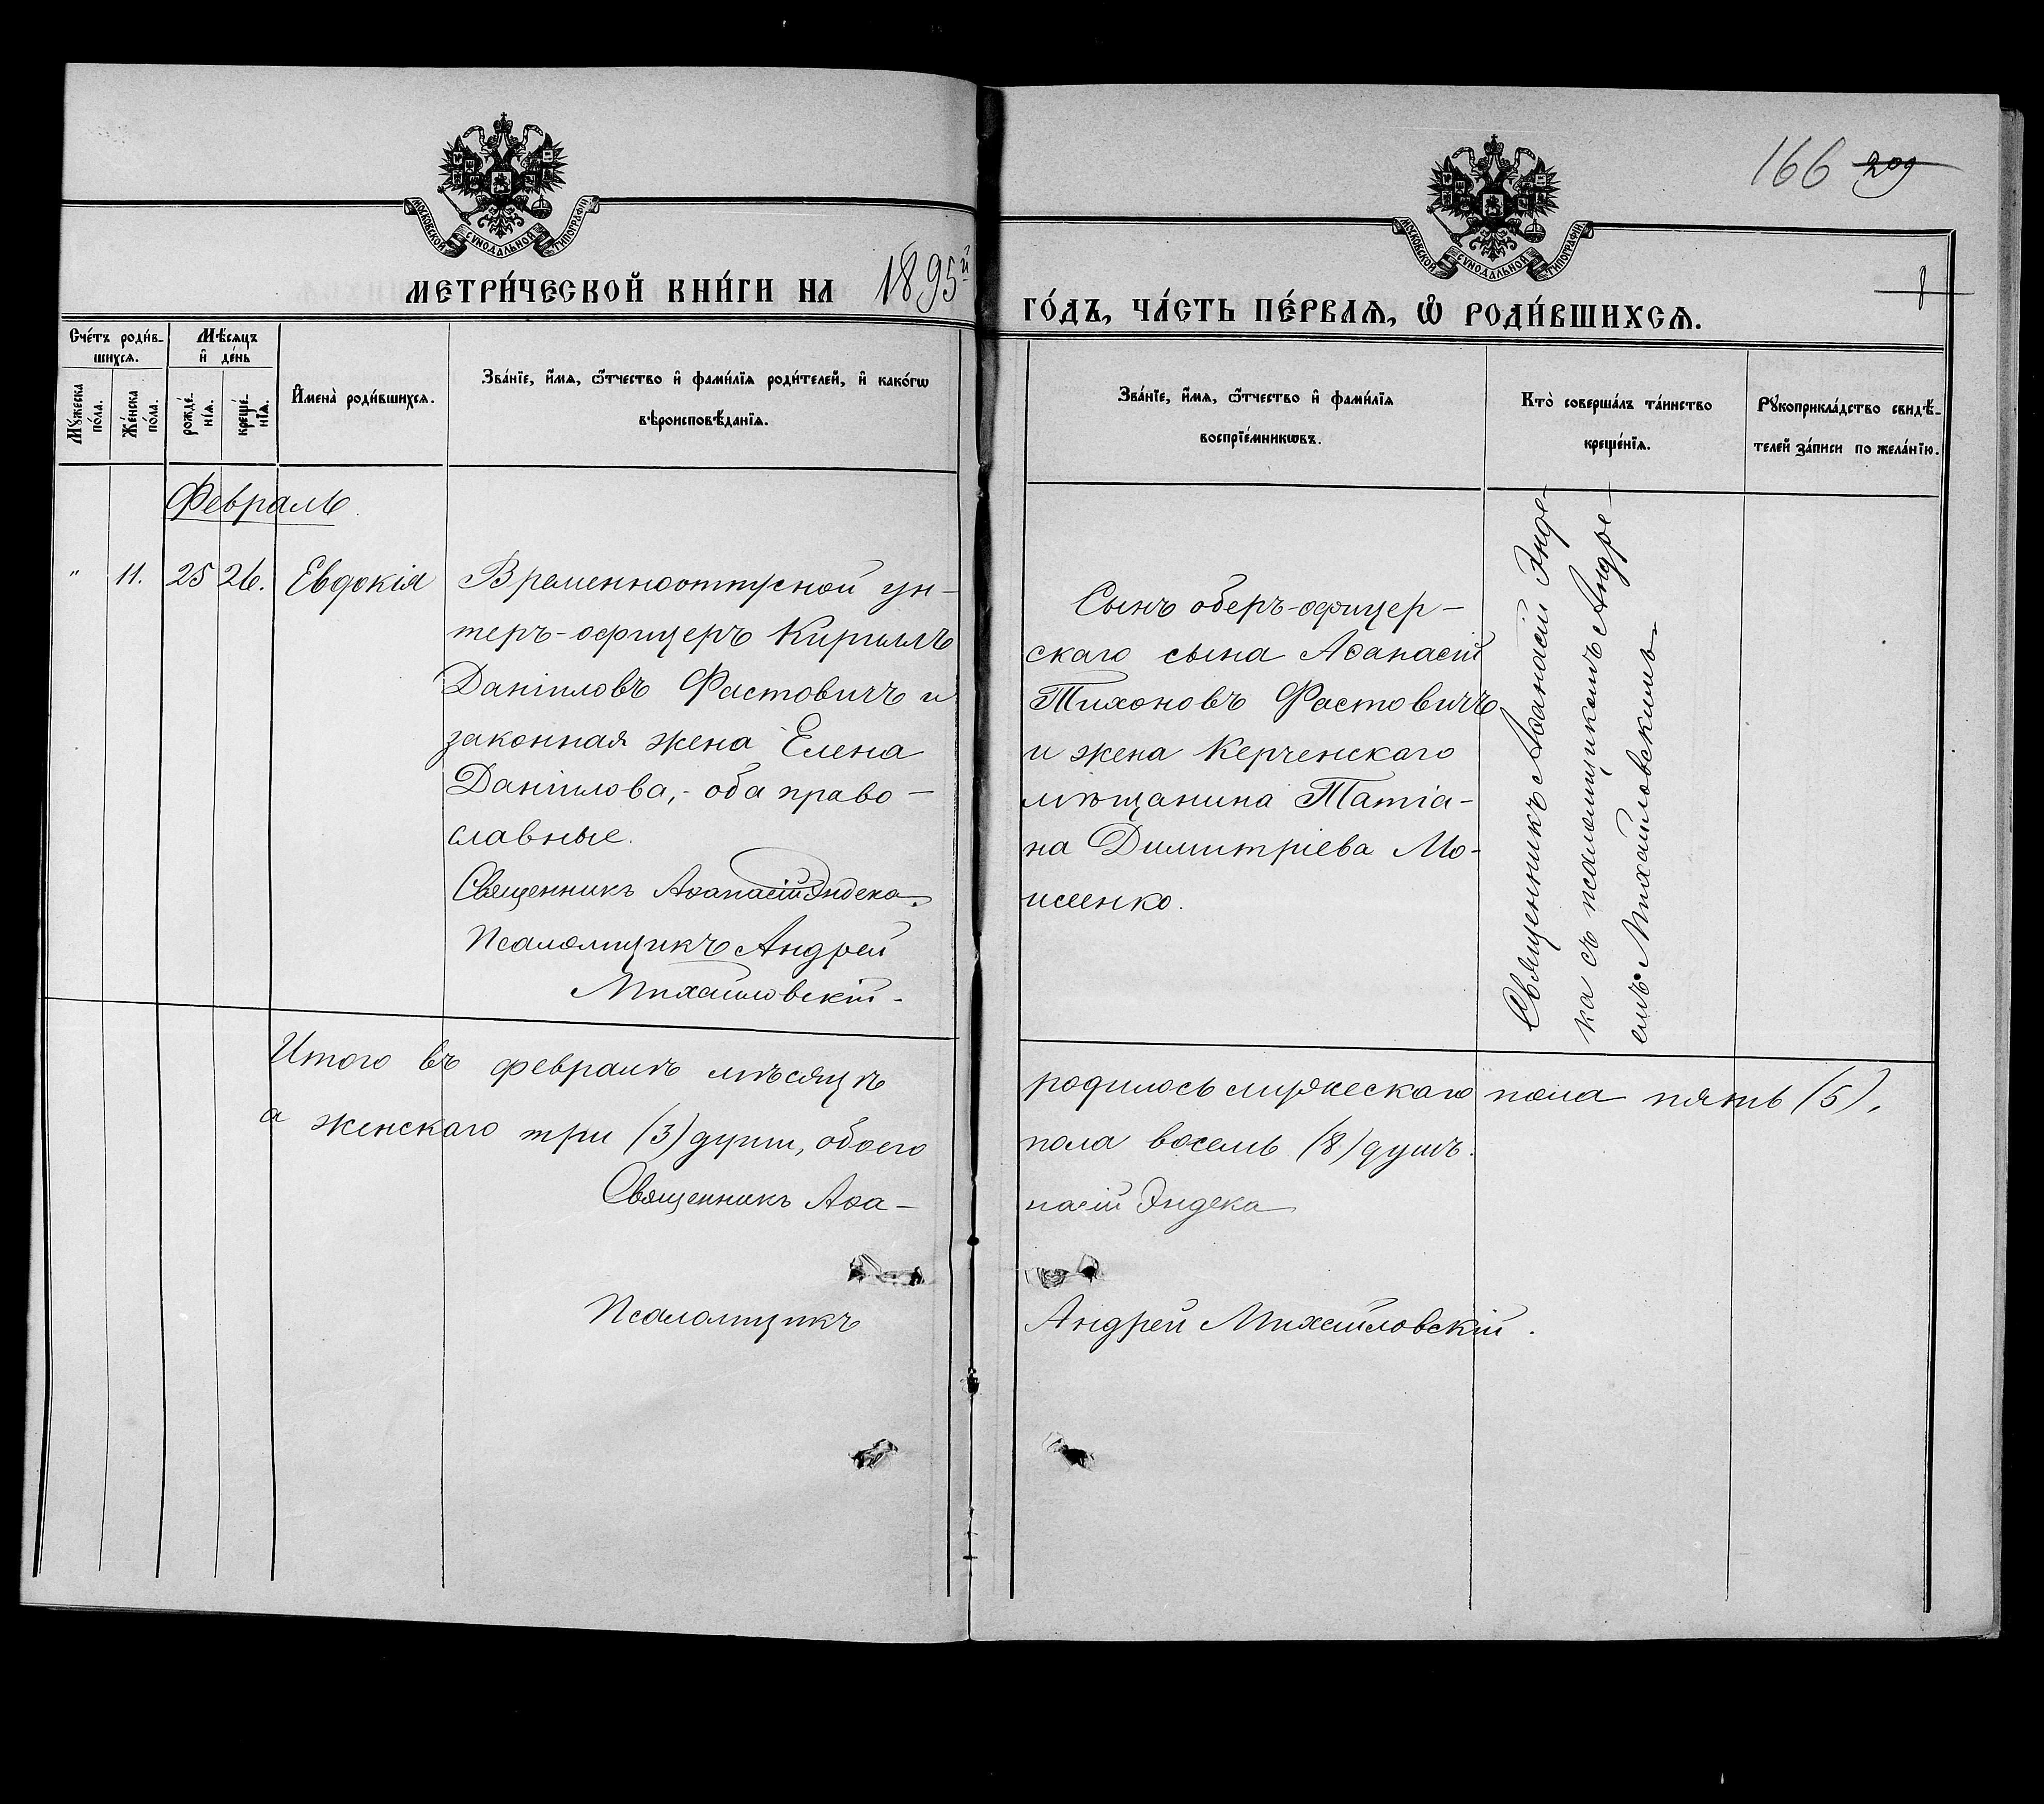 166 209
8
МОСКОВСКОЙ СѴНОДАЛЬНОЙ ТИПОГРАФІИ
МОСКОВСКОЙ СѴНОДАЛЬНОЙ ТИПОГРАФІИ
МЕТРИ́ЧЕСКОЙ КНИ́ГИ НА 1895й
ГО́ДЪ, ЧА́СТЬ ПЕ́РВАѦ, Ѡ҆ РОДИ́ВШИХСѦ.
Сче́тъ роди́в-
шихсѧ.
Мѣ́сѧцъ
и҆ де́нь
Мꙋ́жеска
по́ла.
Же́нска
по́ла.
рожде́-
нїѧ.
креще́-
нїѧ.
И҆мена̀ роди́вшихсѧ.
Зва́нїе, и҆́мѧ, ѻ҆́тчество и҆ фами́лїѧ роди́телей, и҆ како́гѡ
вѣроисповѣ́данїѧ.
Зва́нїе, и҆́мѧ, ѻ҆́тчество и҆ фами́лїѧ
воспрїе́мникѡвъ.
Кто̀ соверша́лъ та́инство
креще́нїѧ.
Рꙋкоприкла́дство свидѣ́-
телей за́писи по жела́нїю.
Февраль.
" 11. 25 26. Евдокія
Временноотпускной ун-
теръ-офицеръ Кириллъ
Даніиловъ Фастовичъ и
законная жена Елена
Даніилова,- оба право-
славные.
Священникъ Аѳанасій Эндека.
Псаломщикъ Андрей
Михайловскій.
Сынъ оберъ-офицер-
скаго сына Аѳанасій
Тихоновъ Фастовичъ
и жена Керченскаго
мѣщанина Татіа-
на Димитріева Мо-
исеенко.
Священникъ Аѳанасій Энде-
ка съ псаломщикомъ Андре-
емъ Михайловскимъ
Итого въ февралѣ мѣсяцѣ родилось мужескаго пола пять (5),
а женскаго три (3) души, обоего пола восемь (8) душъ.
Священникъ Аѳа- насій Эндека
Псаломщикъ Андрей Михайловскій.